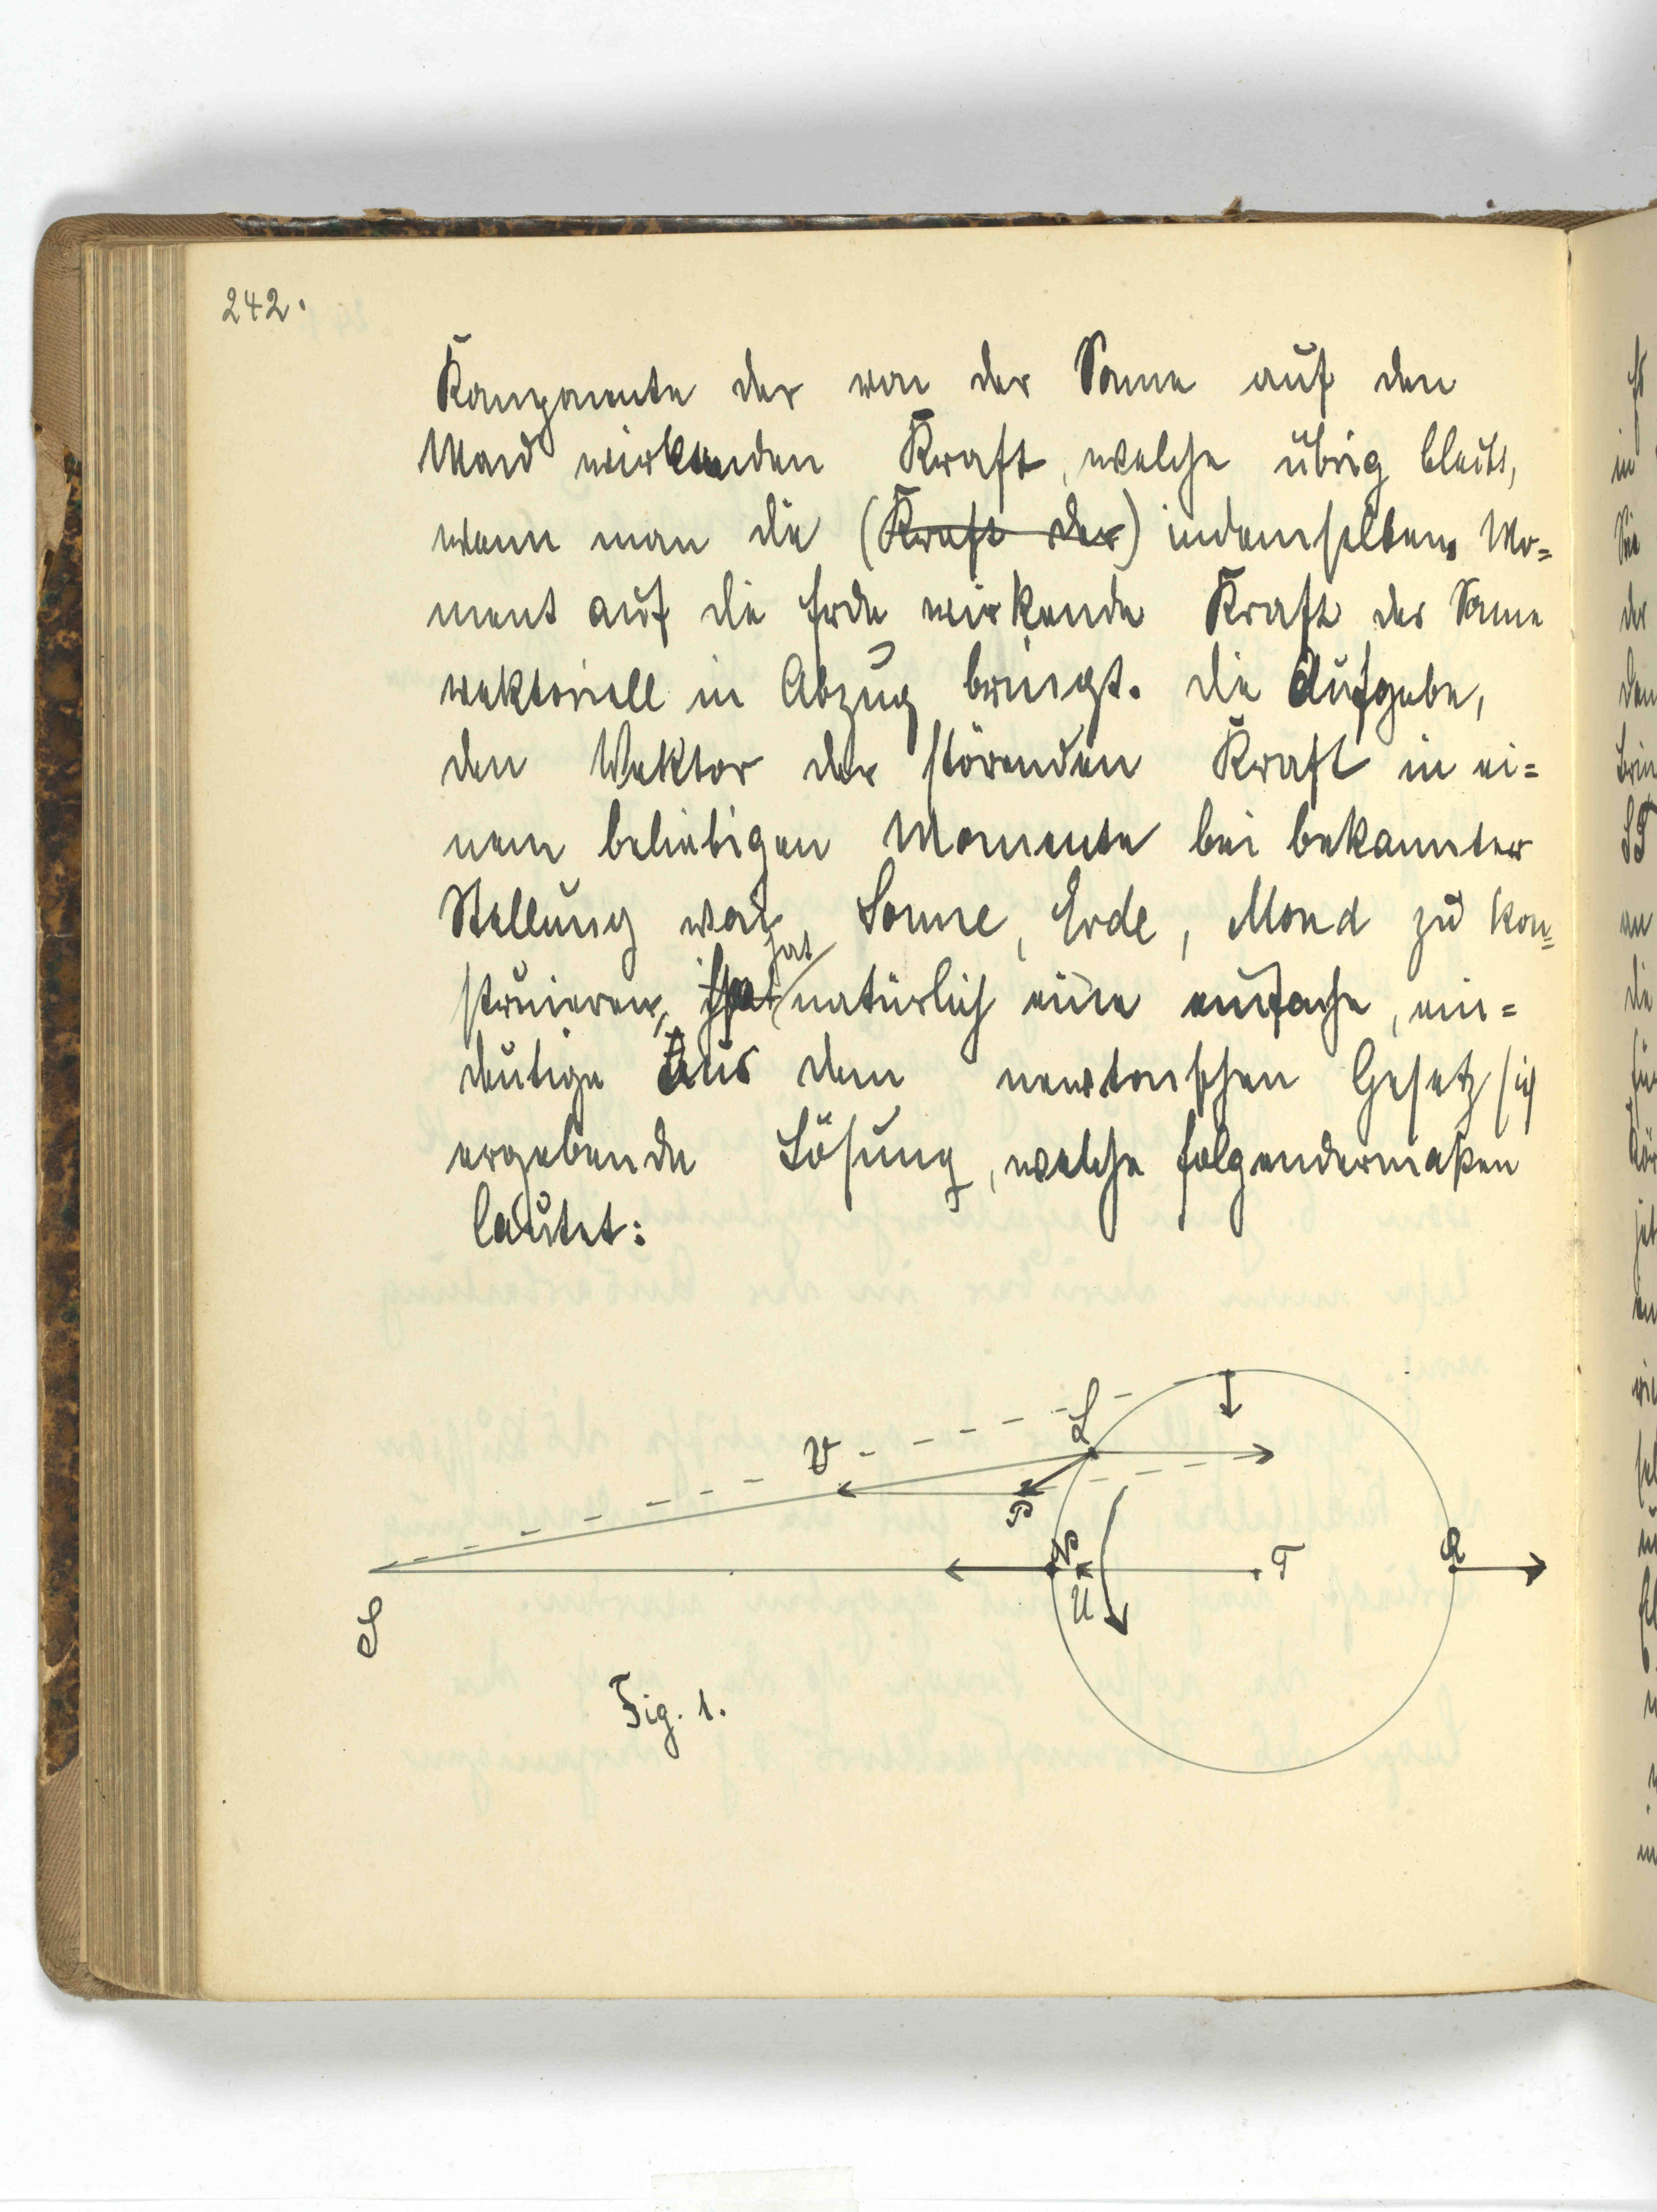 242.
Komponente der von der Sonne auf den
Mond wirkenden Kraft, welche übrig bleibt,
wenn man die (Kraft der) in demselben Mo=
ment auf die Erde wirkende Kraft der Sonne
vektoriell in Abzug bringt. Die Aufgabe,
den Vektor der störenden Kraft in ei=
nem beliebigen Momente bei bekannter
Stellung von Sonne, Erde, Mond zu kon=
struieren, hat natürlich eine einfache, ein=
deutige aus dem newtonschen Gesetz sich
ergebende Lösung, welche folgendermaßen
lautet:
L
V
P
N
T
A
U
S
Fig. 1.